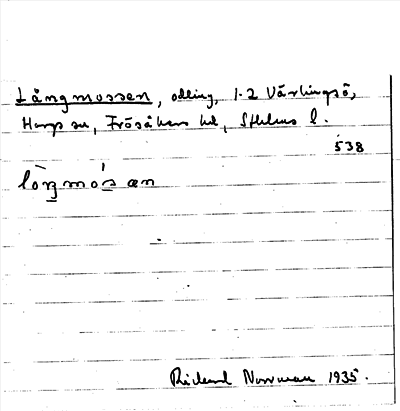 Långmossen, odling, 1-2 Värlingsö,
Hargs sn, Frösåkers hd, Sthlms l.
538
lòŋmós æn
Rickard Norrman 1935.